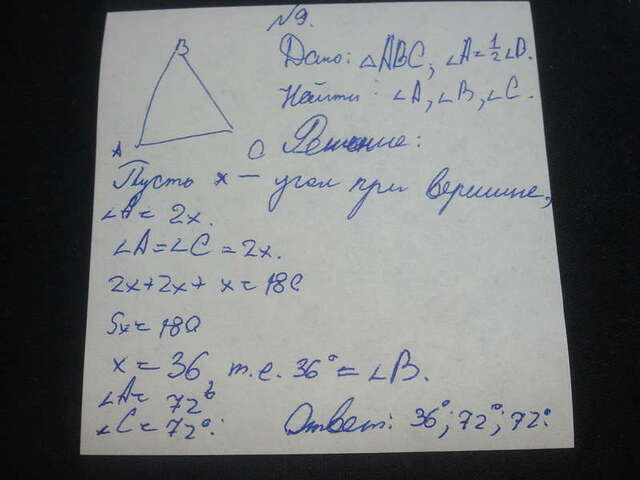 №9.
B
A
C
Дано: △ABC, ∠A=½∠B.
Найти: ∠A, ∠B, ∠C.
Решение:
Пусть x — угол при вершине,
∠A= 2x.
∠A=∠C=2x.
2x+2x+x=180
5x=180
x=36 т.е. 36°=∠B.
∠A= 72°
∠C=72°.
Ответ: 36°; 72°; 72°.